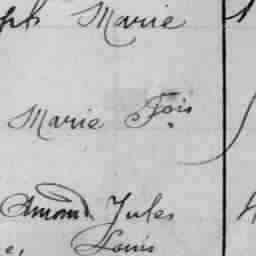 Marie
Marie Fois
Amand Jules
Louis